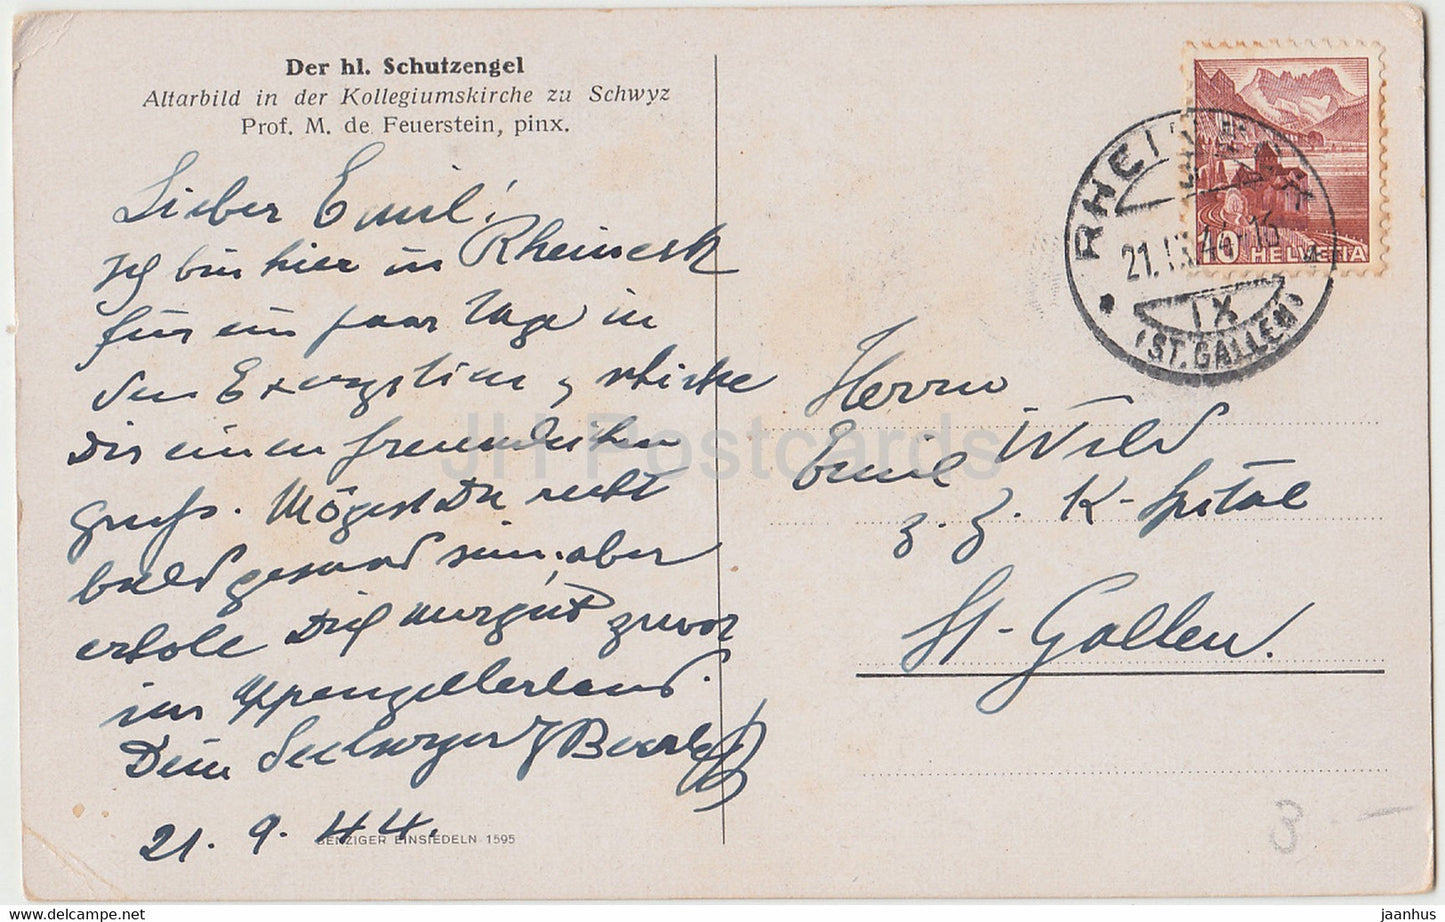 Der hl. Schutzengel
Altarbild in der Kollegiumskirche zu Schwyz
Prof. M. de Feuerstein, pinx.
Lieber Emil!
Ich bin hier in Rheineck
für ein paar Tage in
den Exerzitien & schicke
Dir einen freundlichen
Gruss. Mögest Du recht
bald gesund sein, aber
erhole Dich nur gut zuvor
im Appenzellerland.
Dein Seelsorger
21. 9. 44.
BENZIGER EINSIEDELN 1595
10 HELVETIA
RHEINECK
21.IX.44-16
IX
(ST. GALLEN)
Herrn
Emil Wild
z. Z. K-Spital
St-Gallen.
3 -
JH Postcards
delcampe.net
jaanhus